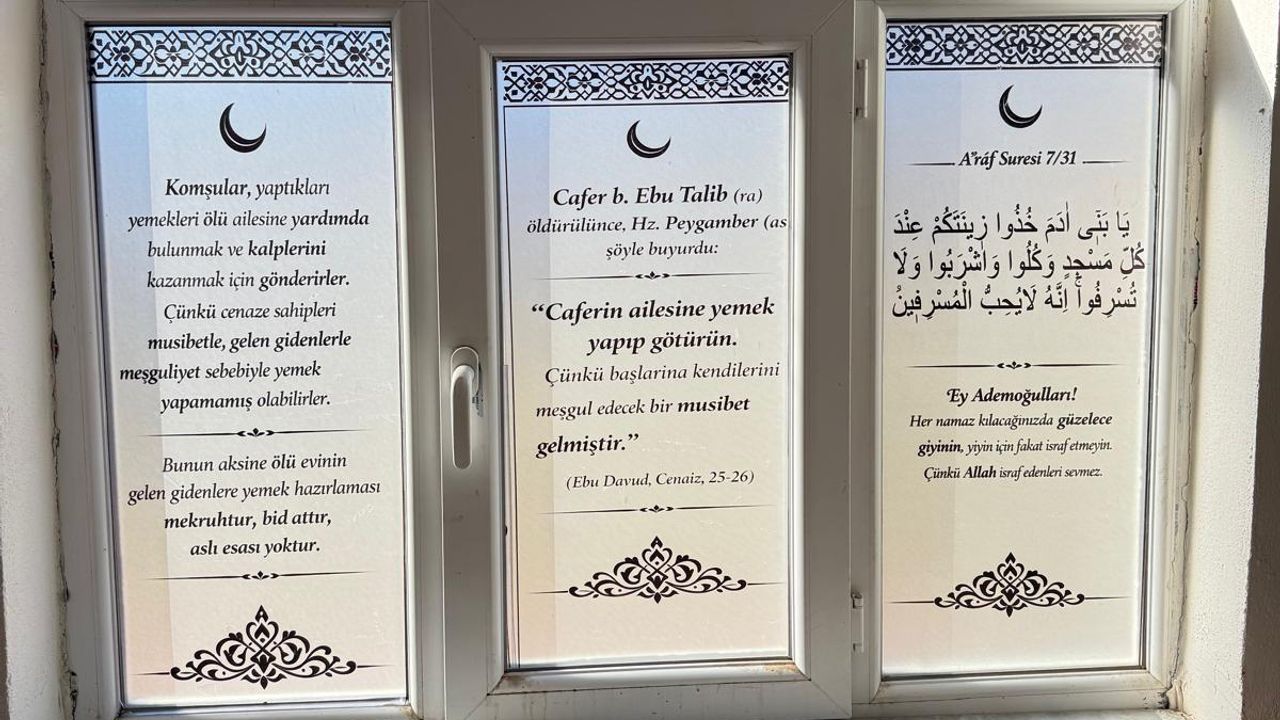 Komşular, yaptıkları
yemekleri ölü ailesine yardımda
bulunmak ve kalplerini
kazanmak için gönderirler.
Çünkü cenaze sahipleri
musibetle, gelen gidenlerle
meşguliyet sebebiyle yemek
yapamamış olabilirler.
Bunun aksine ölü evinin
gelen gidenlere yemek hazırlaması
mekruhtur, bid attır,
aslı esası yoktur.
Cafer b. Ebu Talib (ra)
öldürülünce, Hz. Peygamber (as
şöyle buyurdu:
“Caferin ailesine yemek
yapıp götürün.
Çünkü başlarına kendilerini
meşgul edecek bir musibet
gelmiştir.”
(Ebu Davud, Cenaiz, 25-26)
A”ráf Suresi 7/31
يَا بَنٖٓى اٰدَمَ خُذُوا زٖينَتَكُمْ عِنْدَ
كُلِّ مَسْجِدٍ وَكُلُوا وَاشْرَبُوا وَلَا
تُسْرِفُواۚ اِنَّهُ لَايُحِبُّ الْمُسْرِفٖينَۚ
Ey Ademoğulları!
Her namaz kılacağınızda güzelece
giyinin, yiyin için fakat israf etmeyin.
Çünkü Allah israf edenleri sevmez.